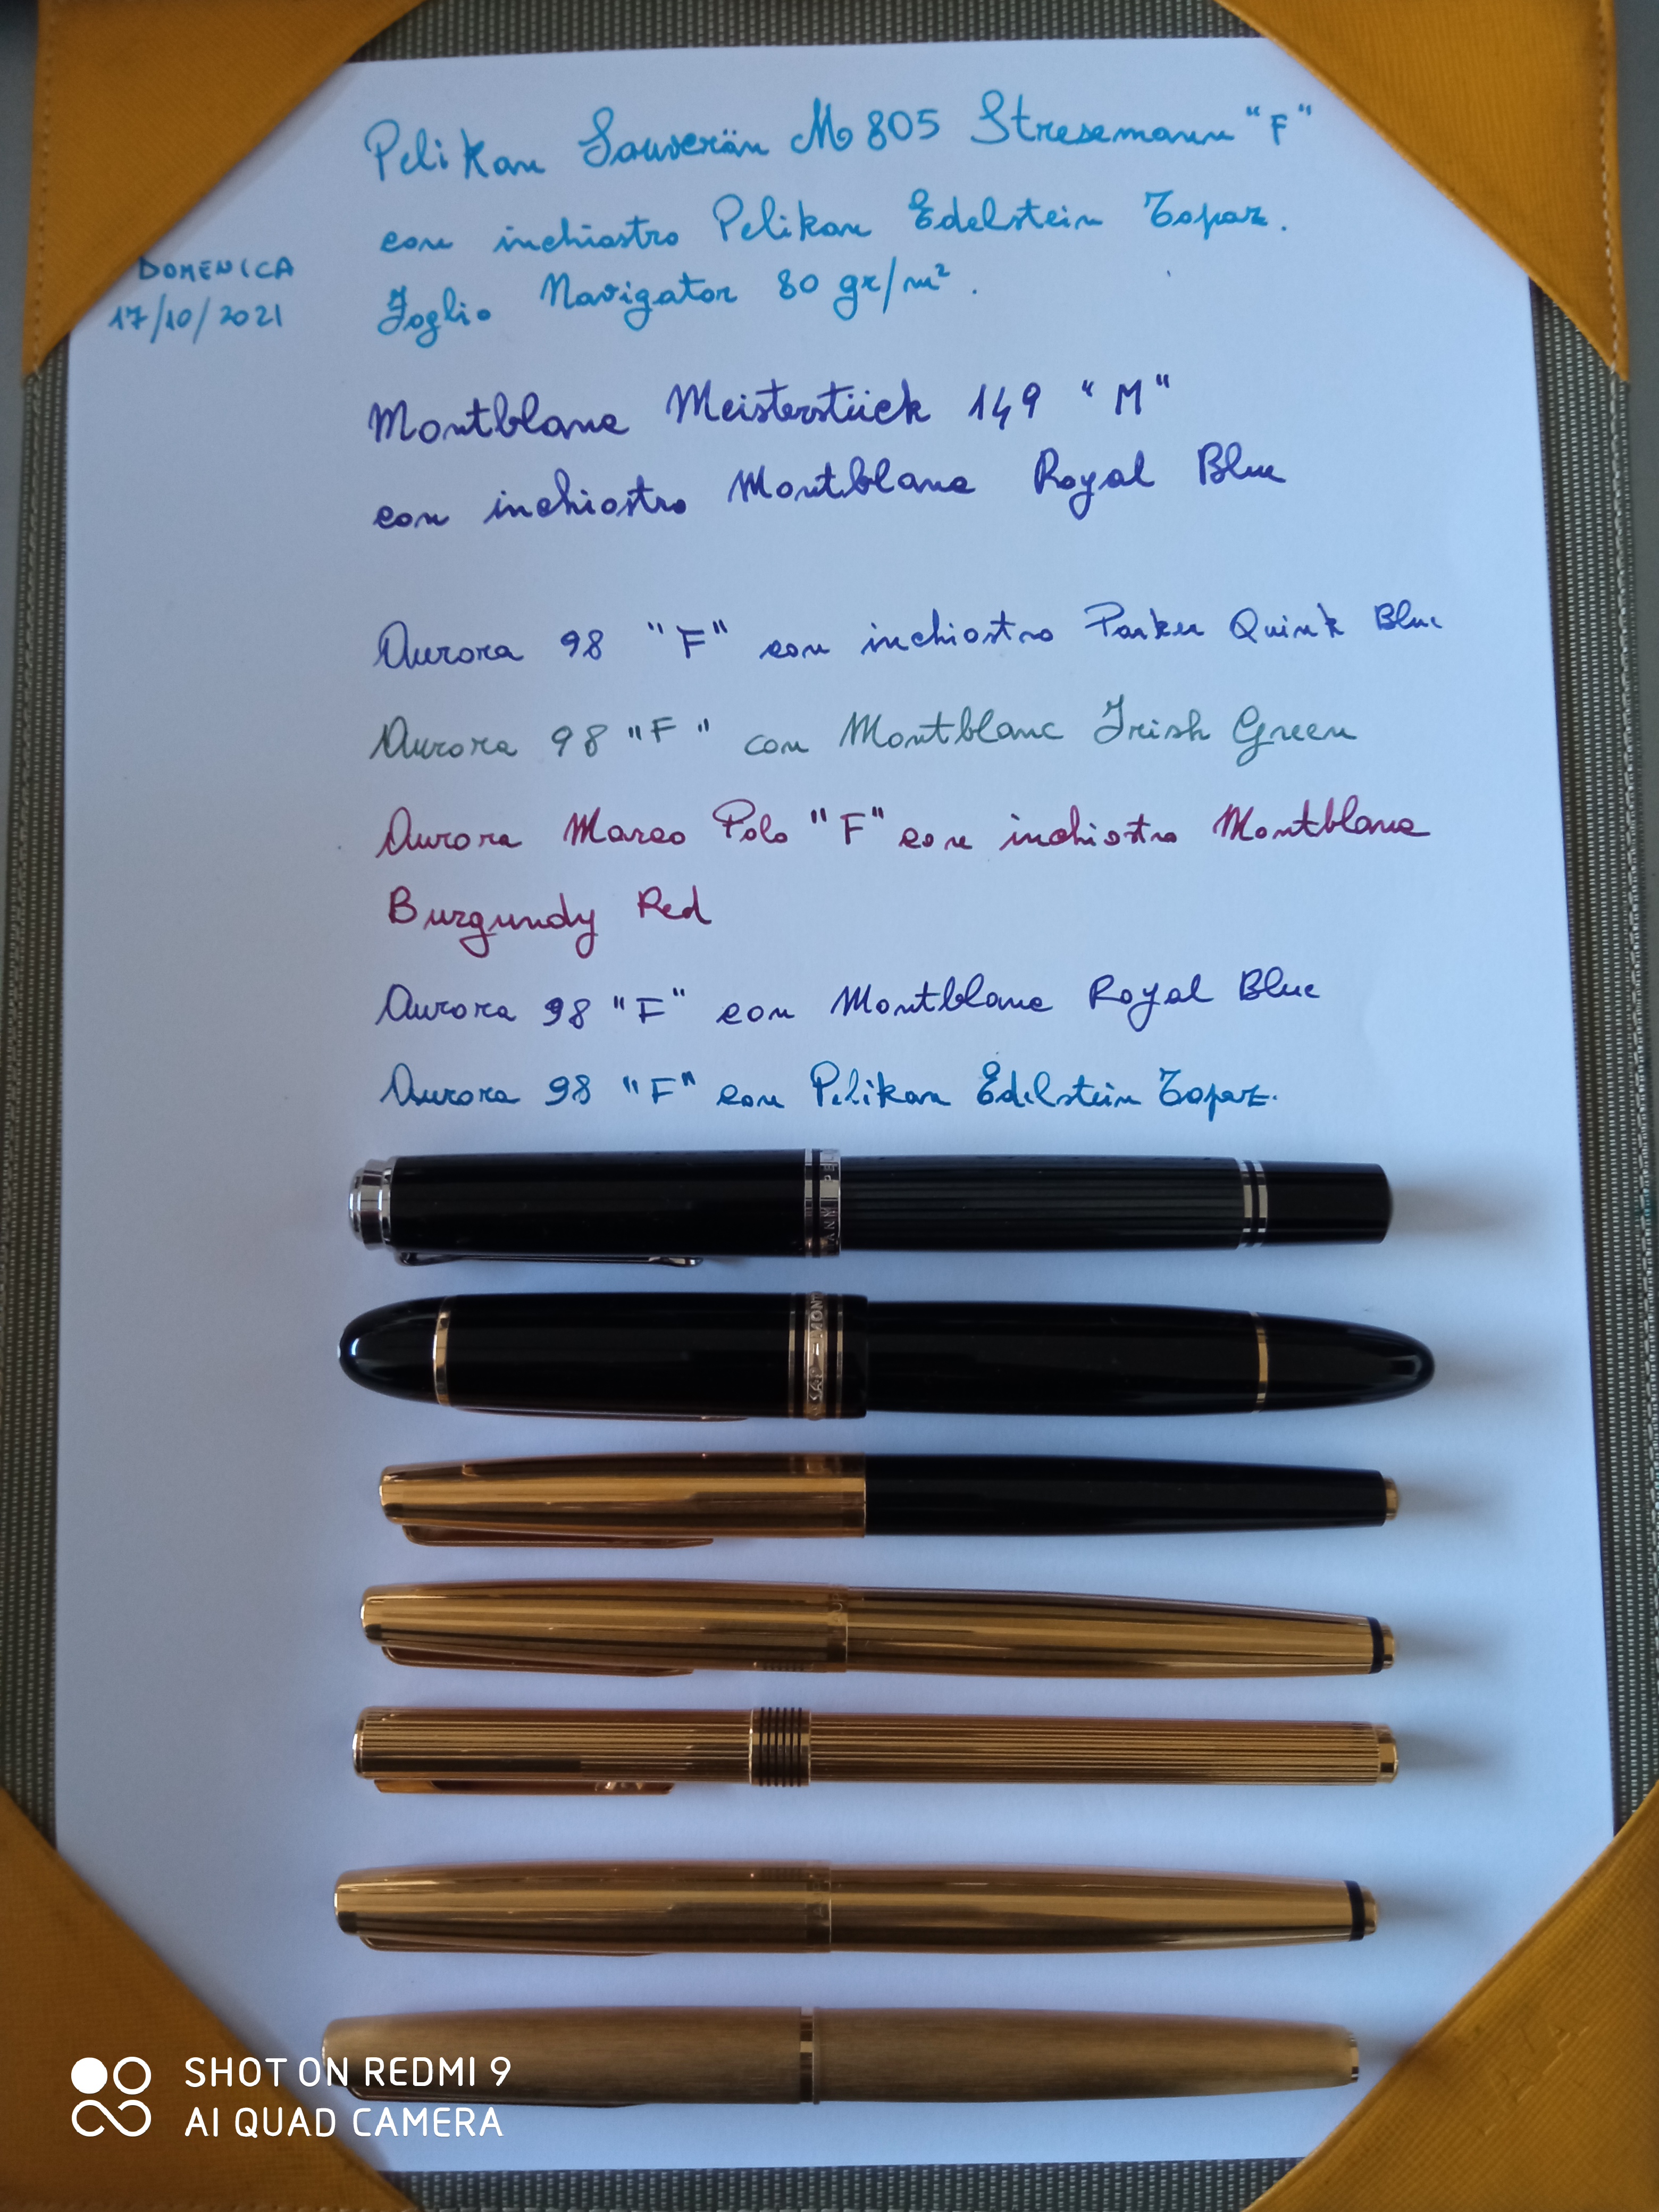 Pelikan Souverän M805 Stresemann "F"
con inchiostro Pelikan Edelstein Topaz.
DOMENICA
17/10/2021
Foglio Navigator 80 gr/m².
Montblanc Meisterstück 149 "M"
con inchiostro Montblanc Royal Blue
Aurora 98 "F" con inchiostro Parker Quink Blue
Aurora 98 "F" con Montblanc Irish Green
Aurora Marco Polo "F" con inchiostro Montblanc
Burgundy Red
Aurora 98 "F" con Montblanc Royal Blue
Aurora 98 "F" con Pelikan Edelstein Topaz.
SHOT ON REDMI 9
AI QUAD CAMERA